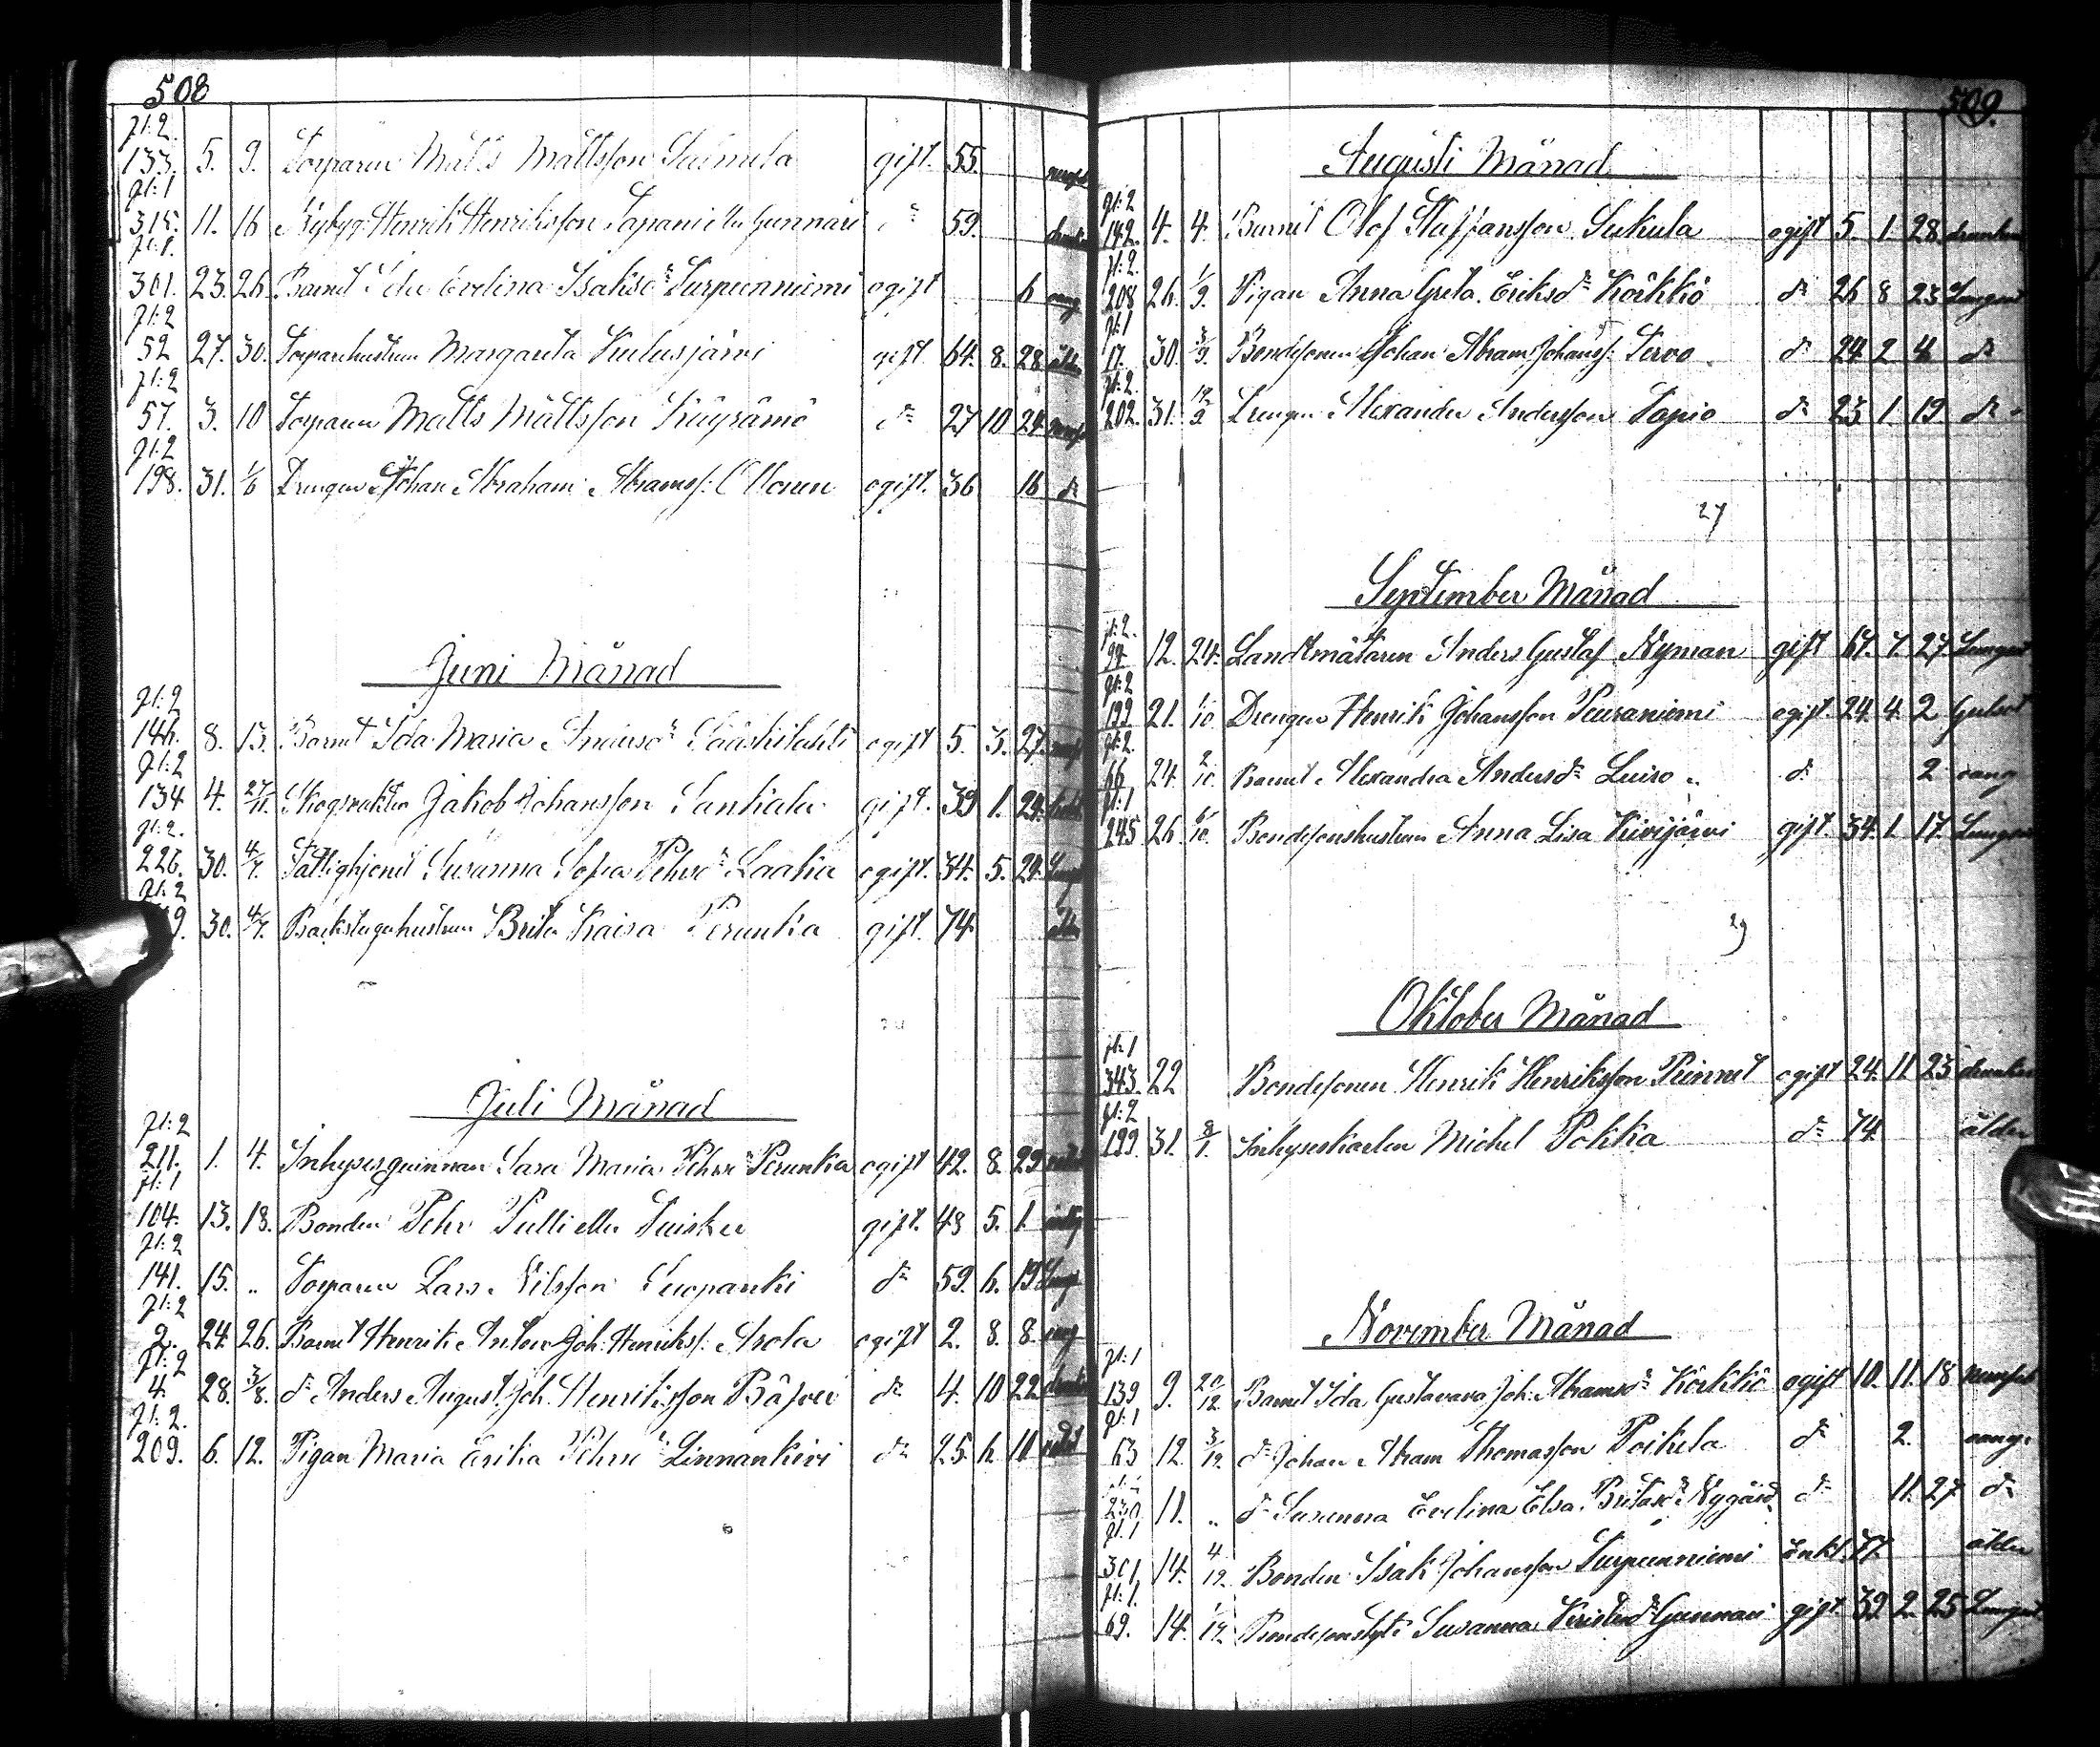 508
pl: 2
133. 5. 9. Torparen Matts Mattsson Salmela gift. 55.
pl: 1
315. 11. 16 Nybygg. Henrik Henriksson Tapani eller Gunnari dº 59. drunkn
pl: 1.
301. 23. 26. Barnet Ida Evelina Isaksdr Surpeenniemi ogift 6 oang
pl: 2
52 27. 30. Torparehustrun Margareta Kulusjärvi gift. 64. 8. 28 ålder
pl: 2
57. 3. 10 Torparen Matts Mattsson Käyrämö dº 27 10 24.
pl: 2
198. 31. 1/6 Drengen Johan Abraham Abramss: Ollonen ogift. 36 16 dº
Juni Månad
pl: 2
146. 8. 13. Barnet Ida Maria Andersdr Sääskilahti ogift 5. 3. 27.
pl: 2
134 4. 27/11. Skogvaktar Jakob Johansson Sankala gift. 39 1. 24.
pl: 2.
226. 30. 4/7. Fattighjonet Susanna Sofia Pehrsdr Laaka ogift. 34. 5. 24. Lungs
pl: 2
9. 30. 4/7. Backstuguhustrun Brita Kaisa Perunka gift. 74. ålder
Juli Månad
pl: 2
211. 1. 4. Inhysesqvinnan Sara Maria Pehrsdr Perunka ogift 42. 8. 29
pl: 1
104. 13. 18. Bonden Pehr Pulli eller Tuisku gift. 48 5. 1.
pl: 2
141. 15. „ Torparen Lars Nilsson Suopanki dº 59. 6. 19 Lungs
pl: 2
2. 24. 26. Barnet Henrik Anton Joh. Henrikss: Arola ogift 2. 8. 8.
pl: 2
4. 28. 3/8. dº Anders August Joh. Henriksson dº 4. 10 22 drunkn
pl: 2.
209. 6. 12. Pigan Maria Erika Pehrsdr Linnankivi dº 25. 6. 11
509.
Augusti Månad
pl: 2
142. 4. 4. Barnet Olof Staffansson Sukula ogift 5. 1. 28 drunkn
pl: 2.
208 26. 1/9. Pigan Anna Greta Eriksdr Körkkö dº 26 8 23 Lungsot
pl: 1
17. 30. 3/9. Bondesonen Johan Abram Johanss: Tervo dº 24 2 4 dº
pl: 2.
202. 31. 19/9. Drengen Alexander Andersson Tapio dº 23 1. 19. dº
27
September Månad
pl: 2.
94 12. 24. Landtmätaren Anders Gustaf Nyman gift 67. 7. 27. Lungsot
pl: 2
199 21. 1/10 Drengen Henrik Johansson Peuraniemi ogift. 24. 4. 2 Gulsot
pl: 2.
66 24. 2/10. Barnet Alexandra Andersdr Luiro dº 2 oang
pl: 1
245 26. 6/10. Bondesonshustrun Anna Lisa Kivijärvi gift. 34. 1. 17. Lungsot
29
Oktober Månad
pl: 1
343. 22 Bondesonen Henrik Henriksson ogift 24. 11 23 drunkn
pl: 2
199. 31. 8/1. Inhyseskarlen Michel Pokka dº 74. ålder
November Månad
pl: 1
139 9. 20/12. Barnet Ida Gustava Joh. Abramsdr Körkkö ogift 10. 11. 18
pl: 1
63 12. 3/12. dº Johan Abram Thomasson Poikela dº 2. oang.
230 11. „ dº Susanna Evelina Elsa Britasdr Nygård dº 11. 27 dº
pl: 1
301 14. 4/12. Bonden Isak Johansson Surpeenniemi Enkl. 77. ålder
pl: 1.
69. 14. 1/12. Susanna Gunnari gift. 39 2. 25 Lungsot